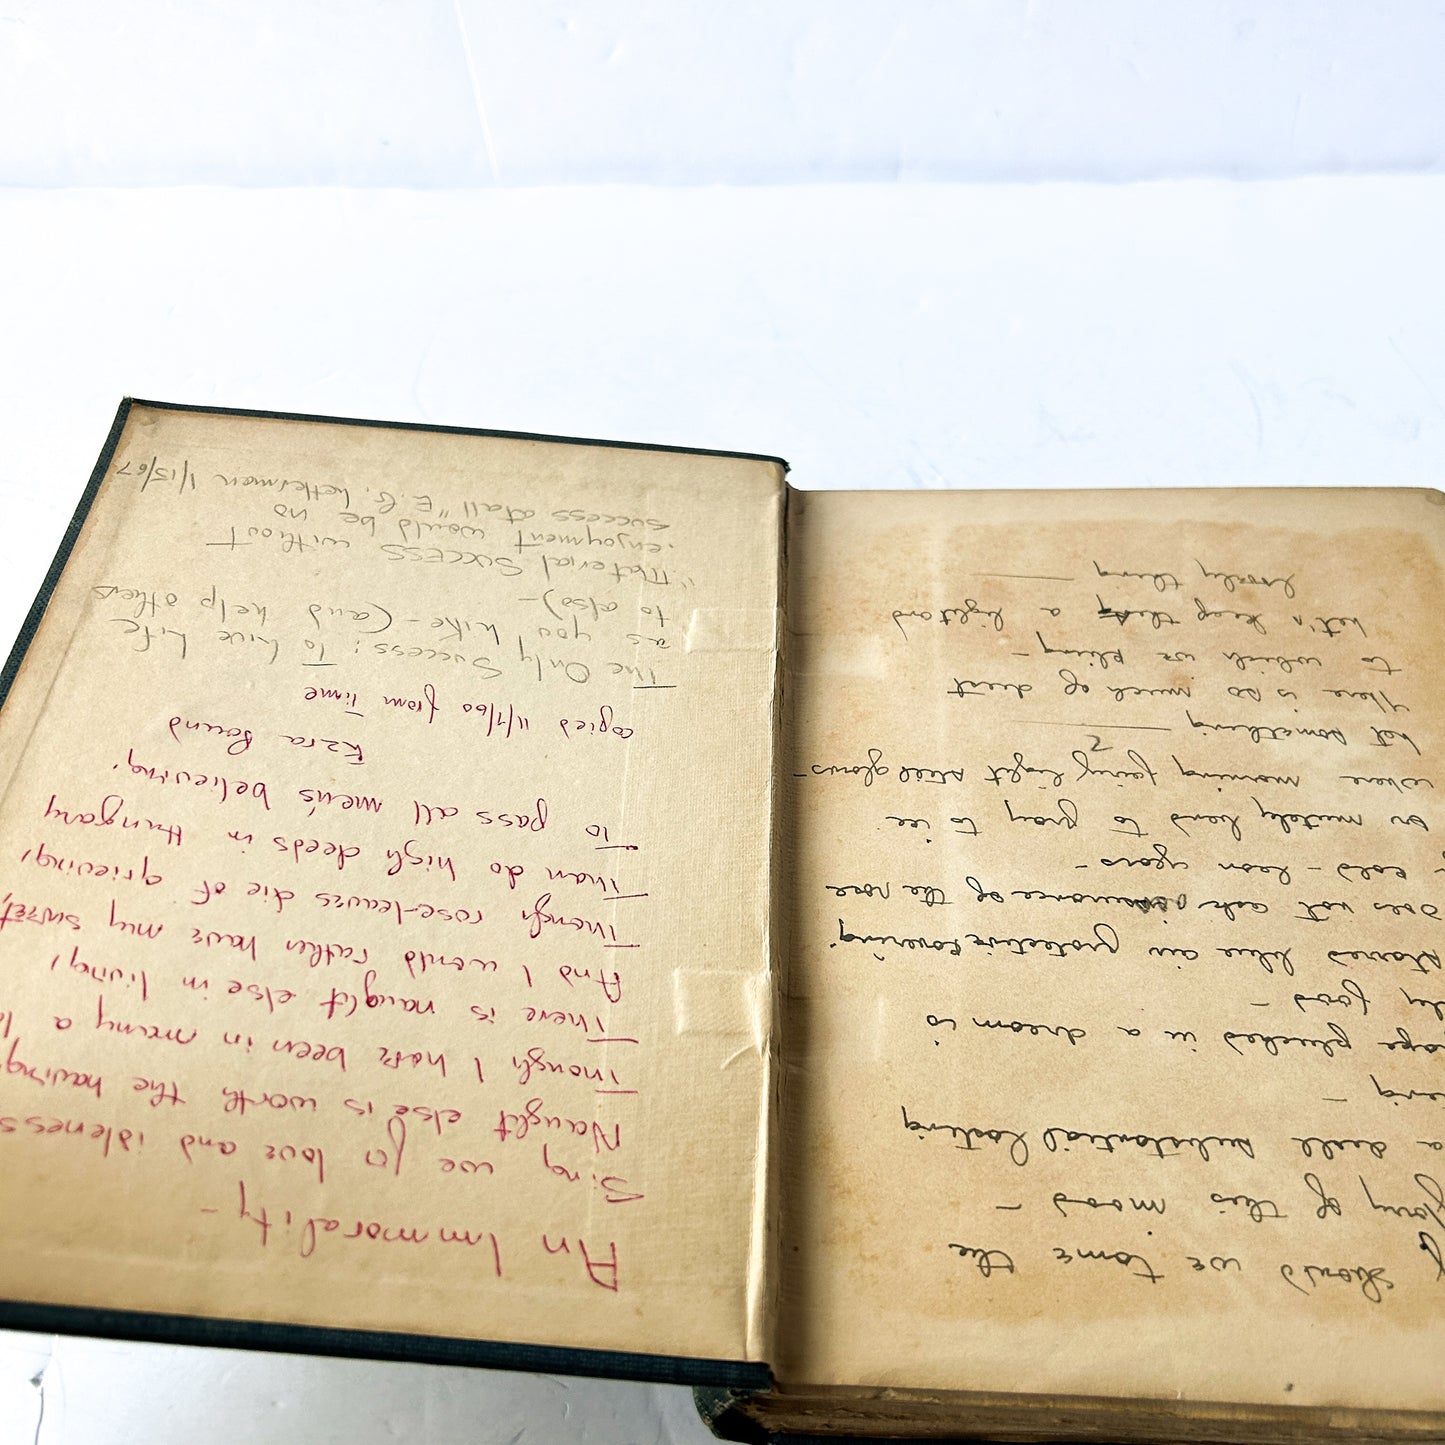 should we tame the
glory of this mood -
a dull substantial lasting
plucked in a dream is
food -
blue air protective covering
Does not ask of the rose
- cold - lean years -
or mutely bend to gray to ice
where morning fairy light steel glows -
but something
There is so much of dust
to which we cling -
Let's keep a light and
lovely thing
An Immorality -
Sing we for love and idleness
Naught else is worth the having.
Though I have been in many a
There is naught else in living,
And I would rather have my sweet,
Though rose-leaves die of grieving,
Than do high deeds in Hungary
To pass all men's believing.
Ezra Pound
copied 11/7/60 from Time
The Only Success: To Live Life
as you like - (and help others
to also) -
"Material Success without
enjoyment would be no
success at all" E.G. Letterman 1/15/67